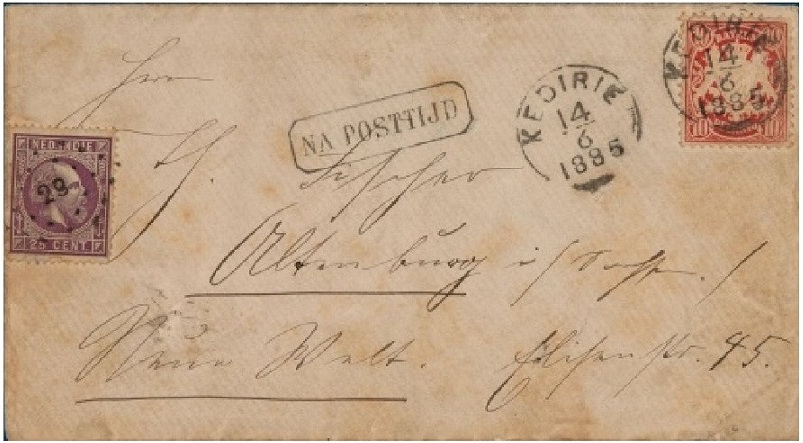 KEDIRIE
14
6
1885
10
10
Herrn
NA POSTTIJD
KEDIRIE
14
6
1885
NED-INDIE
29
25 CENT
H. Fischer
Altenburg i/
Neue Welt. Elisenstr. 45.